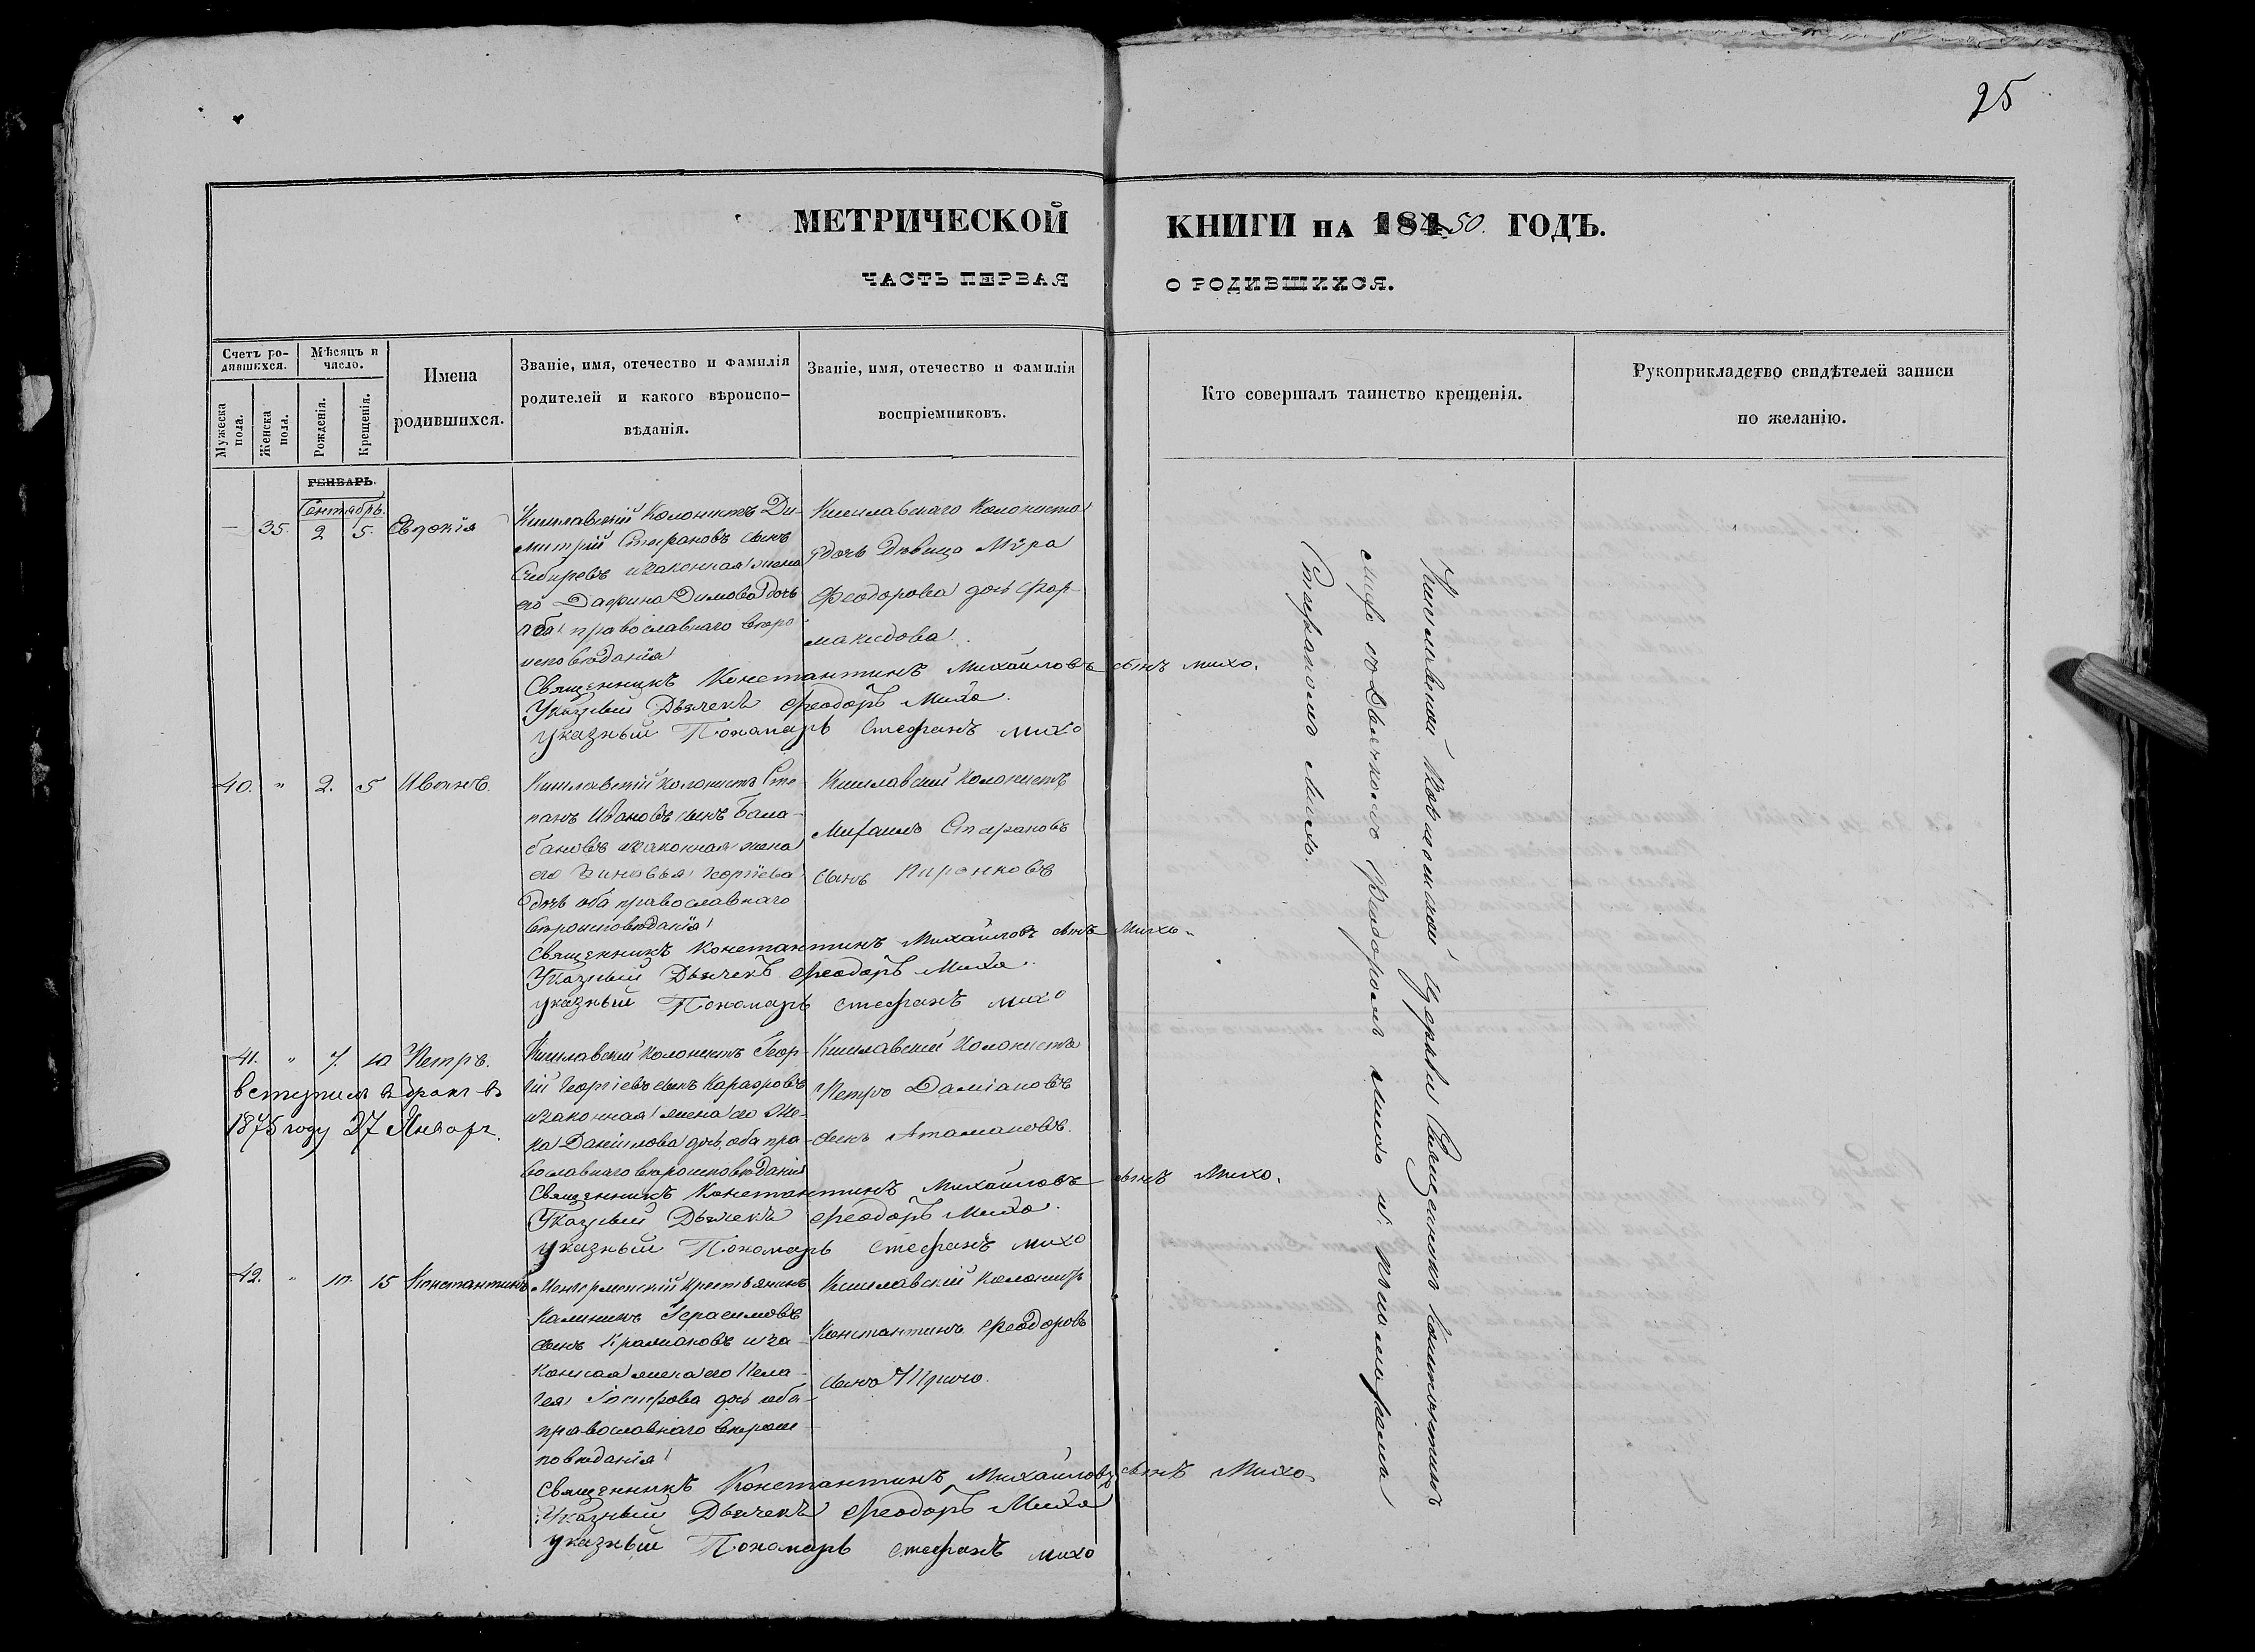 25
МЕТРИЧЕСКОЙ КНИГИ НА 1850. ГОДЪ.
ЧАСТЬ ПЕРВАЯ О РОДИВШИХСЯ.
Счетъ родившихся.
Мужеска пола.
Женска пола.
Мѣсяцъ и число.
Рожденія.
Крещенія.
Имена родившихся.
Званіе, имя, отечество и фамилія
родителей и какого вѣроиспо-
вѣданія.
Званіе, имя, отечество и фамилія
воспріемниковъ.
Кто совершалъ таинство крещенія.
Рукоприкладство свидѣтелей записи
по желанію.
ГЕНВАРЬ.
Сентябрь.
— 35. 2 5. Евдокія
Кишлавскій Колонистъ Ди-
митрій Стефановъ сынъ
и законная жена
его Дафина Димова дочь
оба православнаго вѣро
исповѣданія
Кишлавскаго Колониста
дочь Дѣвица Мѣра
Феодорова дочь Фар-
макидова.
Священникъ Константинъ Михайловъ сынъ Михо.
Указный Дьячекъ Феодоръ Михо
указный Пономарь Стефанъ михо
40. " 2. 5 Иванъ.
Кишлавскій Колонистъ Сте-
панъ Ивановъ сынъ Бала-
бановъ и законная жена
его Зиновья Георгіева
дочь оба православнаго
вѣроисповѣданія
Кишлавскій Колонистъ
Михаилъ Стефановъ
сынъ Пиронковъ
Священникъ Константинъ Михайловъ сынъ Михо.
Указный Дьячекъ Феодоръ Михо
указный Пономарь Стефанъ михо
41. " 7. 10 Петръ.
вступилъ въ бракъ въ
1875 году 27 Январ.
Кишлавскій Колонистъ Геор-
гій Георгіевъ сынъ Карафовъ
и законная жена его
Даніилова дочь, оба пра-
вославнаго вѣроисповѣданія
Кишлавскій Колонистъ
Петро Даміановъ
сынъ Атамановъ.
Священникъ Константинъ Михайловъ сынъ Михо.
Указный Дьячекъ Феодоръ Михо
указный Пономарь Стефанъ михо
42. " 10. 15 Константинъ
Крестьянинъ
Калиникъ Герасимовъ
сынъ и за-
конная жена его Пела-
гея дочь оба
православнаго вѣроис-
повѣданія
Кишлавскій Колонистъ
Константинъ Феодоровъ
сынъ
Священникъ Константинъ Михайловъ сынъ Михо.
Указный Дьячекъ Феодоръ Михо
указный Пономарь Стефанъ михо
Кишлавской Церкви Священникъ Константинъ
михо съ Дьячкомъ Феодоромъ михо и пономаремъ
Стефаномъ Михо.